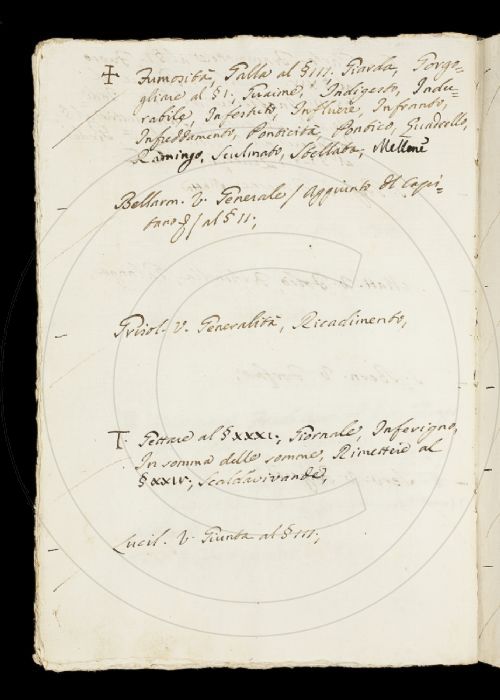 Fumosità, Galla al § III; Giarda, Gorgo=
gliare al § I; Guaime, Indigesto, Indu=
rabile, Infestito, Influere, Infrando,
Infreddamento, Ponticità, Pontico, Quadrello,
Ramingo, Sculmato, Sbellata, Mellone
Bellarm. V. Generale / Aggiunto del Capi=
tano / al § II;
Grisol. V. Generalità, Ricadimento,
T. Gettare al § XXXI; Giornale, Inferigno,
In somma delle somme, Rimettere al
§ XXIV; Scaldavivande,
Lucil. V. Giunta al § III;